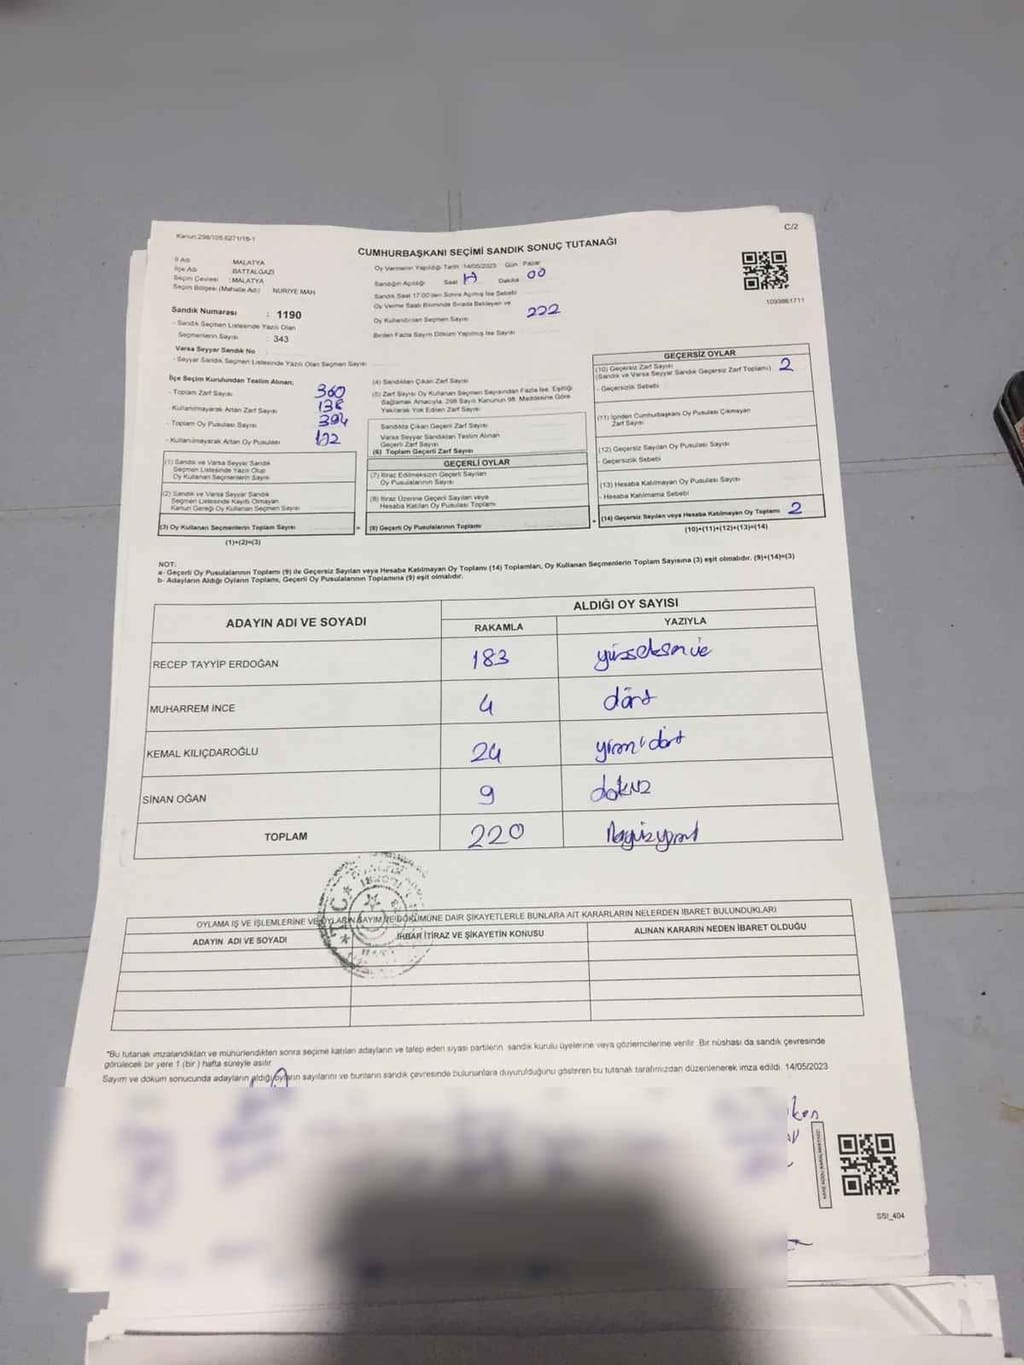 Kanun:298/105,6271/18-1
C/2
CUMHURBAŞKANI SEÇİMİ SANDIK SONUÇ TUTANAĞI
İl Adı MALATYA
İlçe Adı BATTALGAZİ
Seçim Çevresi : MALATYA
Seçim Bölgesi (Mahalle Adı) : NURİYE MAH
Sandık Numarası : 1190
- Sandık Seçmen Listesinde Yazılı Olan
Seçmenlerin Sayısı : 343
Varsa Seyyar Sandık No
- Seyyar Sandık Seçmen Listesinde Yazılı Olan Seçmen Sayısı
Oy Vermenin Yapıldığı Tarih 14/05/2023 Gün Pazar
Sandığın Açıldığı Saat Dakika 00
Sandık Saat 17:00'den Sonra Açılmış İse Sebebi
Oy Verme Saati Bitiminde Sırada Bekleyen ve
Oy Kullandırılan Seçmen Sayısı 222
Birden Fazla Sayım Döküm Yapılmış İse Sayısı
1093861711
İlçe Seçim Kurulundan Teslim Alınan;
- Toplam Zarf Sayısı 360
- Kullanılmayarak Artan Zarf Sayısı 138
- Toplam Oy Pusulası Sayısı
- Kullanılmayarak Artan Oy Pusulası
(1) Sandık ve Varsa Seyyar Sandık
Seçmen Listesinde Yazılı Olup
Oy Kullanan Seçmenlerin Sayısı
(2) Sandık ve Varsa Seyyar Sandık
Seçmen Listesinde Kayıtlı Olmayan
Kanun Gereği Oy Kullanan Seçmen Sayısı
(3) Oy Kullanan Seçmenlerin Toplam Sayısı
(1)+(2)=(3)
(4) Sandıktan Çıkan Zarf Sayısı
(5) Zarf Sayısı Oy Kullanan Seçmen Sayısından Fazla İse, Eşitliği
Sağlamak Amacıyla, 298 Sayılı Kanunun 98. Maddesine Göre
Yakılarak Yok Edilen Zarf Sayısı
Sandıkta Çıkan Geçerli Zarf Sayısı
Varsa Seyyar Sandıktan Teslim Alınan
Geçerli Zarf Sayısı
(6) Toplam Geçerli Zarf Sayısı
GEÇERLİ OYLAR
(7) İtiraz Edilmeksizin Geçerli Sayılan
Oy Pusulalarının Sayısı
(8) İtiraz Üzerine Geçerli Sayılan veya
Hesaba Katılan Oy Pusulası Toplamı
(9) Geçerli Oy Pusulalarının Toplamı
GEÇERSİZ OYLAR
(10) Geçersiz Zarf Sayısı
(Sandık ve Varsa Seyyar Sandık Geçersiz Zarf Toplamı) 2
- Geçersizlik Sebebi
(11) İçinden Cumhurbaşkanı Oy Pusulası Çıkmayan
Zarf Sayısı
(12) Geçersiz Sayılan Oy Pusulası Sayısı
- Geçersizlik Sebebi
(13) Hesaba Katılmayan Oy Pusulası Sayısı
- Hesaba Katılmama Sebebi
(14) Geçersiz Sayılan veya Hesaba Katılmayan Oy Toplamı 2
(10)+(11)+(12)+(13)=(14)
NOT:
a- Geçerli Oy Pusulalarının Toplamı (9) ile Geçersiz Sayılan veya Hesaba Katılmayan Oy Toplamı (14) Toplamları, Oy Kullanan Seçmenlerin Toplam Sayısına (3) eşit olmalıdır. (9)+(14)=(3)
b- Adayların Aldığı Oyların Toplamı, Geçerli Oy Pusulalarının Toplamına (9) eşit olmalıdır.
ADAYIN ADI VE SOYADI
ALDIĞI OY SAYISI
RAKAMLA YAZIYLA
RECEP TAYYİP ERDOĞAN 183
MUHARREM İNCE 4 dört
KEMAL KILIÇDAROĞLU 24 yirmidört
SİNAN OĞAN 9 dokuz
TOPLAM 220
T.C.
OYLAMA İŞ VE İŞLEMLERİNE VE OYLARIN SAYIM VE DÖKÜMÜNE DAİR ŞİKAYETLERLE BUNLARA AİT KARARLARIN NELERDEN İBARET BULUNDUKLARI
ADAYIN ADI VE SOYADI İHBAR İTİRAZ VE ŞİKAYETİN KONUSU ALINAN KARARIN NEDEN İBARET OLDUĞU
*Bu tutanak imzalandıktan ve mühürlendikten sonra seçime katılan adayların ve talep eden siyasi partilerin sandık kurulu üyelerine veya gözlemcilerine verilir. Bir nüshası da sandık çevresinde
görülecek bir yere 1 (bir) hafta süreyle asılır.
Sayım ve döküm sonucunda adayların aldığı oyların sayılarını ve bunların sandık çevresinde bulunanlara duyurulduğunu gösteren bu tutanak tarafımızdan düzenlenerek imza edildi. 14/05/2023
SSI_404